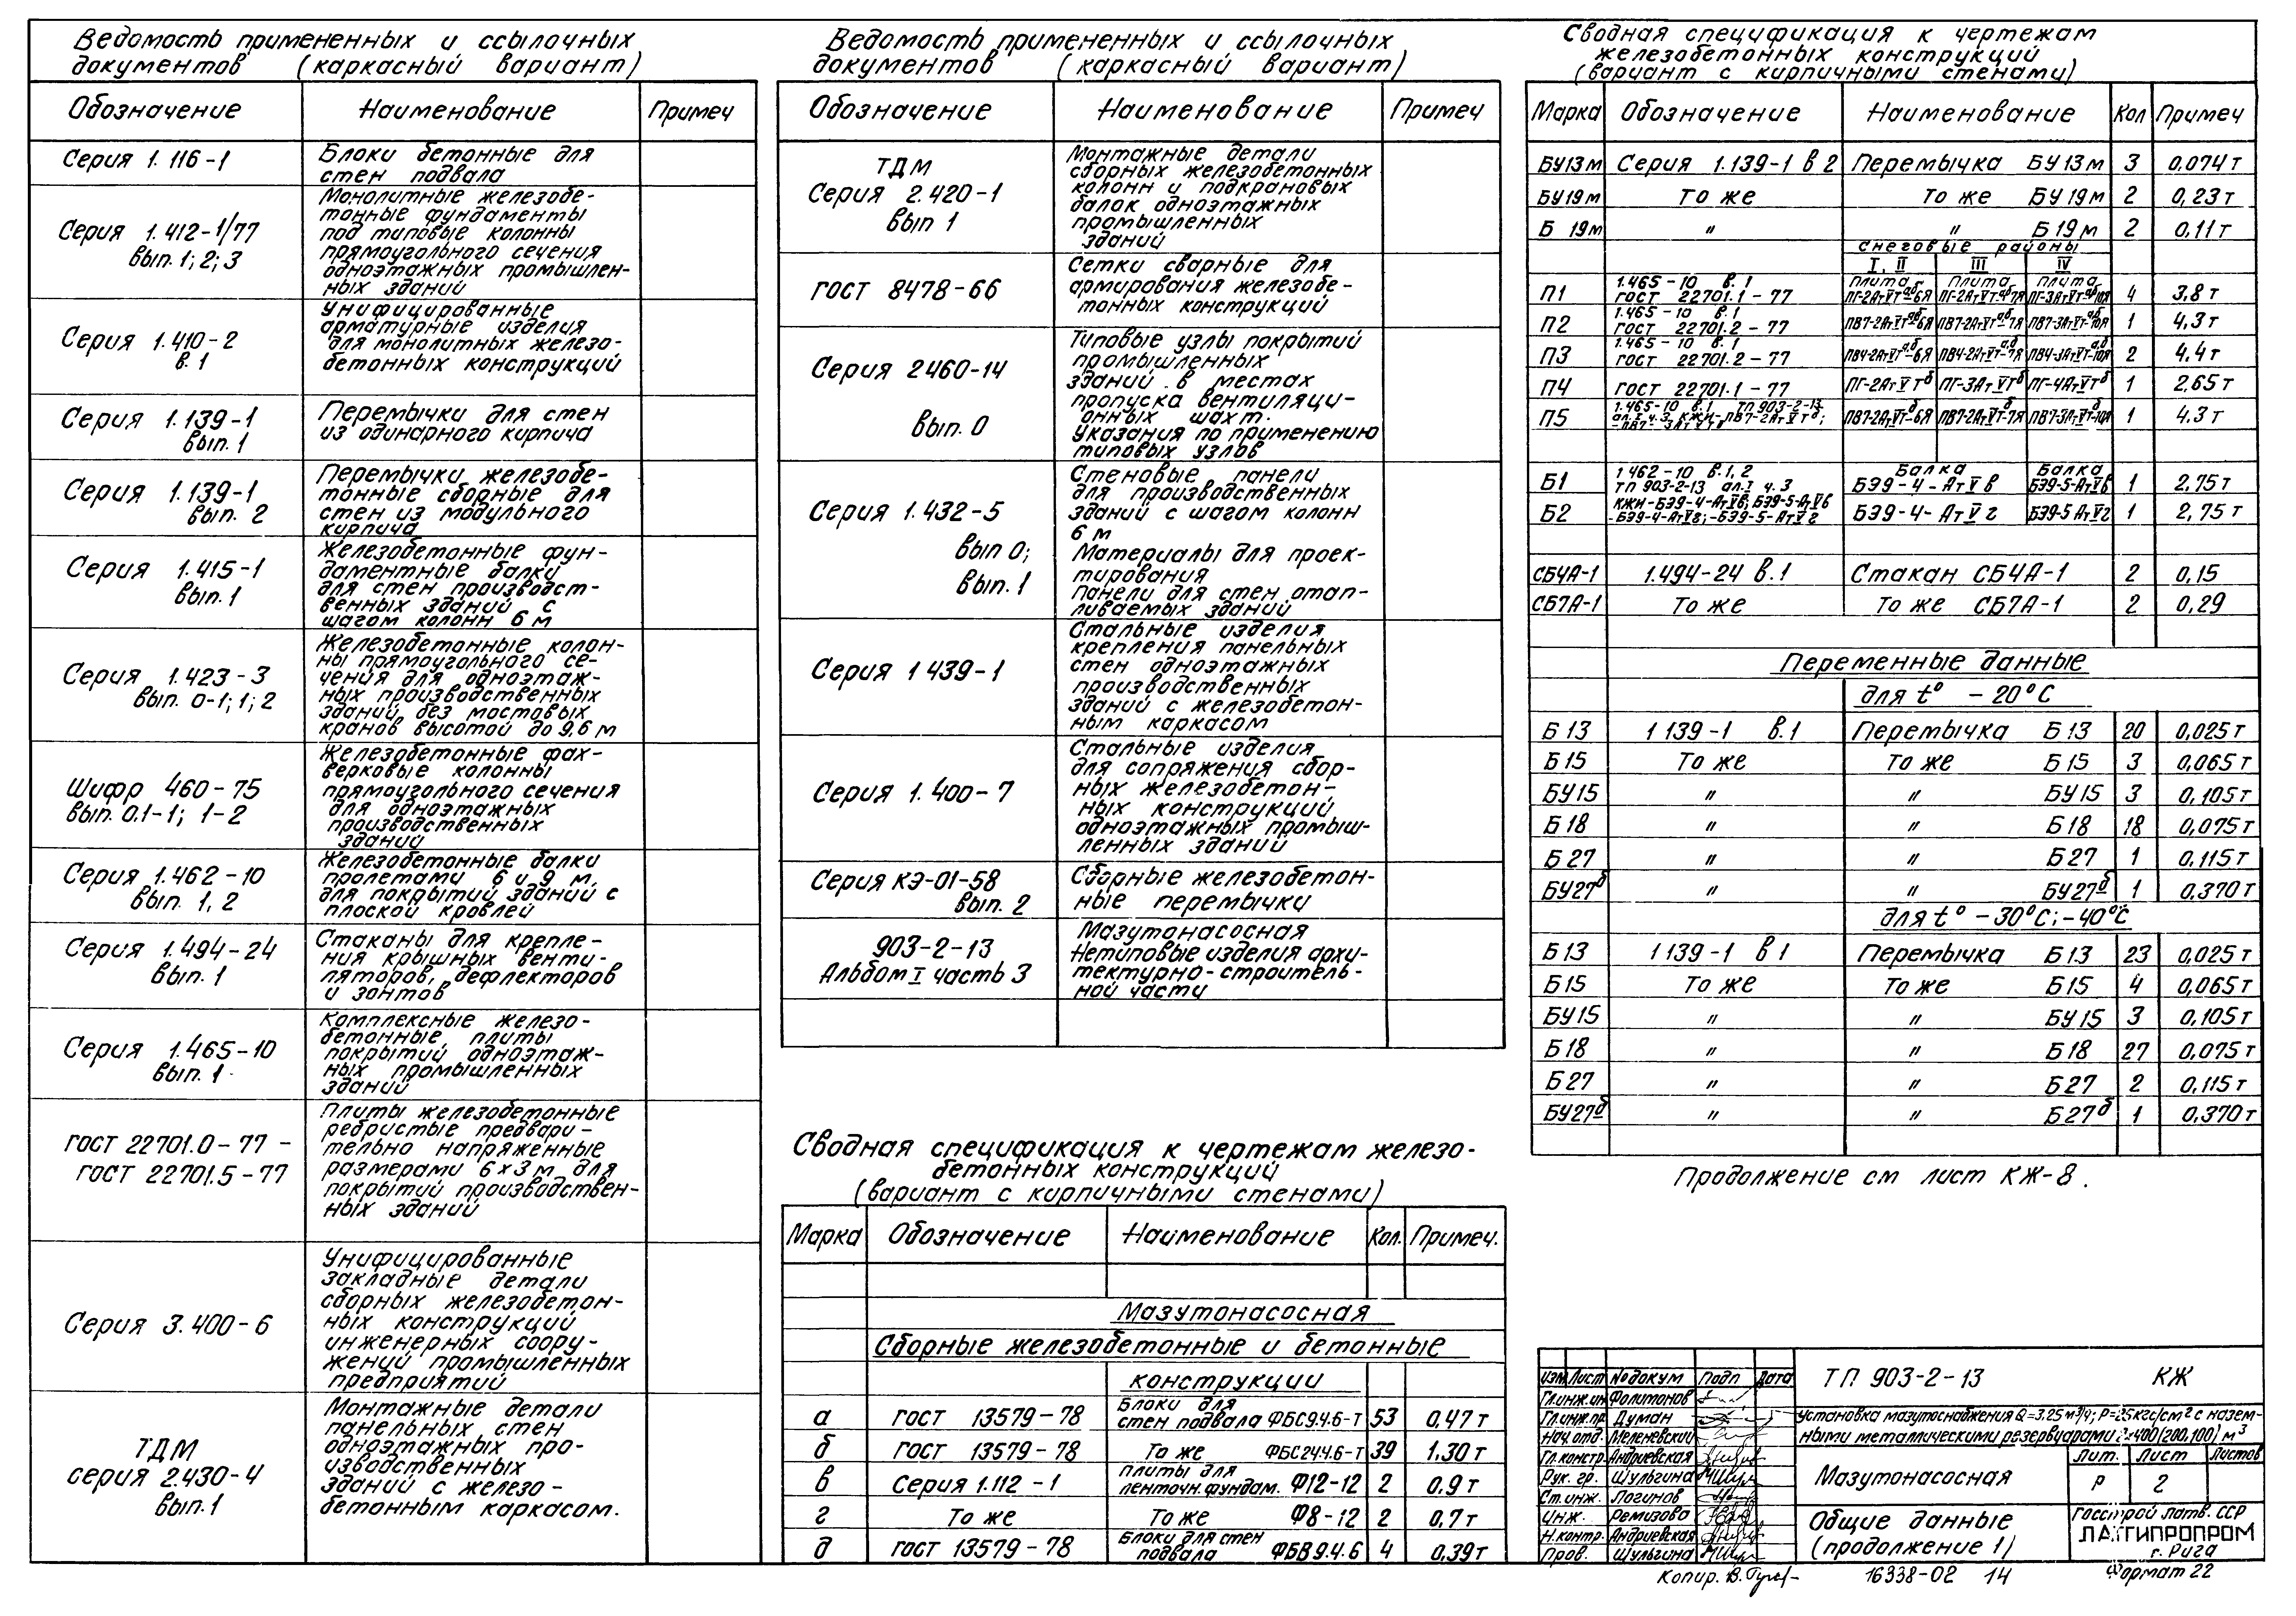 Ведомость примененных и ссылочных
документов (каркасный вариант)
Обозначение Наименование Примеч
Серия 1.116-1 Блоки бетонные для
стен подвала
Серия 1.412-1/77
вып. 1; 2; 3
Монолитные железобе-
тонные фундаменты
под типовые колонны
прямоугольного сечения
одноэтажных промышлен-
ных зданий
Серия 1.410-2
в. 1
Унифицированные
арматурные изделия
для монолитных железо-
бетонных конструкций
Серия 1.139-1
вып. 1
Перемычки для стен
из одинарного кирпича
Серия 1.139-1
вып. 2
Перемычки железобе-
тонные сборные для
стен из модульного
кирпича
Серия 1.415-1
вып. 1
Железобетонные фун-
даментные балки
для стен производст-
венных зданий с
шагом колонн 6 м
Серия 1.423-3
вып. 0-1; 1; 2
Железобетонные колон-
ны прямоугольного се-
чения для одноэтаж-
ных производственных
зданий без мостовых
кранов высотой до 9,6 м
Шифр 460-75
вып. 0.1-1; 1-2
Железобетонные фах-
верковые колонны
прямоугольного сечения
для одноэтажных
производственных
зданий
Серия 1.462-10
вып. 1, 2
Железобетонные балки
пролетами 6 и 9 м,
для покрытий зданий с
плоской кровлей
Серия 1.494-24
вып. 1
Стаканы для крепле-
ния крышных венти-
ляторов, дефлекторов
и зонтов
Серия 1.465-10
вып. 1
Комплексные железо-
бетонные плиты
покрытий одноэтаж-
ных промышленных
зданий
ГОСТ 22701.0-77 -
ГОСТ 22701.5-77
Плиты железобетонные
ребристые предвари-
тельно напряженные
размерами 6х3 м для
покрытий производствен-
ных зданий
Серия 3.400-6
Унифицированные
закладные детали
сборных железобетон-
ных конструкций
инженерных соору-
жений промышленных
предприятий
ТДМ
серия 2.430-4
вып. 1
Монтажные детали
панельных стен
одноэтажных про-
изводственных
зданий с железо-
бетонным каркасом.
Ведомость примененных и ссылочных
документов (каркасный вариант)
Обозначение Наименование Примеч
ТДМ
Серия 2.420-1
вып 1
Монтажные детали
сборных железобетонных
колонн и подкрановых
балок одноэтажных
промышленных
зданий
ГОСТ 8478-66
Сетки сварные для
армирования железобе-
тонных конструкций
Серия 2460-14
вып. 0
Типовые узлы покрытий
промышленных
зданий в местах
пропуска вентиляци-
онных шахт.
Указания по применению
типовых узлов
Серия 1.432-5
вып 0;
вып. 1
Стеновые панели
для производственных
зданий с шагом колонн
6 м
Материалы для проек-
тирования
панели для стен отап-
ливаемых зданий
Серия 1 439-1
Стальные изделия
крепления панельных
стен одноэтажных
производственных
зданий с железобетон-
ным каркасом
Серия 1.400-7
Стальные изделия
для сопряжения сбор-
ных железобетон-
ных конструкций
одноэтажных промыш-
ленных зданий
Серия КЭ-01-58
вып. 2
Сборные железобетон-
ные перемычки
903-2-13
Альбом I часть 3
Мазутонасосная
Нетиповые изделия архи-
тектурно-строитель-
ной части
Сводная спецификация к чертежам железо-
бетонных конструкций
(вариант с кирпичными стенами)
Марка Обозначение Наименование Кол. Примеч.
Мазутонасосная
Сборные железобетонные и бетонные
конструкции
а ГОСТ 13579-78 Блоки для стен подвала ФБС9.4.6-Т 53 0,47 т
б ГОСТ 13579-78 То же ФБС24.4.6-Т 39 1,30 т
в Серия 1.112-1 Плиты для ленточн. фундам. Ф12-12 2 0,9 т
г То же То же Ф8-12 2 0,7 т
д ГОСТ 13579-78 Блоки для стен подвала ФБВ9.4.6 4 0,39 т
Сводная спецификация к чертежам
железобетонных конструкций
(вариант с кирпичными стенами)
Марка Обозначение Наименование Кол Примеч
БУ13м Серия 1.139-1 в 2 Перемычка БУ13м 3 0,074 т
БУ19м То же То же БУ19м 2 0,23 т
Б 19м " " Б19м 2 0,11 т
снеговые районы
I, II III IV
П1 1.465-10 в.1 ГОСТ 22701.1-77 Плита Плита Плита 4 3,8 т
П2 1.465-10 в.1 ГОСТ 22701.2-77 1 4,3 т
П3 1.465-10 в.1 ГОСТ 22701.2-77 2 4,4 т
П4 ГОСТ 22701.1-77 ПГ-2АтVТб ПГ-3АтVТб ПГ-4АтVТб 1 2,65 т
П5 1.465-10 в.1 ТП 903-2-13 1 4,3 т
Б1 1 462-10 в.1, 2 ТП 903-2-13 ал.I ч.3 Балка БЭ9-4-АтVв Балка БЭ9-5-АтVв 1 2,75 т
КЖИ-БЭ9-4-АтVв; БЭ9-5-АтVв
Б2 -БЭ9-4-АтVг; -БЭ9-5-АтVг БЭ9-4-АтVг БЭ9-5АтVг 1 2,75 т
СБ4А-1 1.494-24 в.1 Стакан СБ4А-1 2 0,15
СБ7А-1 То же То же СБ7А-1 2 0,29
Переменные данные
для t° -20°С
Б 13 1 139-1 в.1 Перемычка Б 13 20 0,025 т
Б 15 То же То же Б 15 3 0,065 т
БУ15 " " БУ15 3 0,105 т
Б 18 " " Б18 18 0,075 т
Б 27 " " Б27 1 0,115 т
БУ27б " " БУ27б 1 0,370 т
для t° -30°С; -40°С
Б 13 1 139-1 в 1 Перемычка Б13 23 0,025 т
Б15 То же То же Б15 4 0,065 т
БУ15 " " БУ15 3 0,105 т
Б18 " " Б18 27 0,075 т
Б27 " " Б27 2 0,115 т
БУ27б " " Б27б 1 0,370 т
Продолжение см лист КЖ-8.
Изм Лист №докум Подп Дата
Гл.инж.ин Фолитонов
Гл.инж.пр. Думан
Нач.отд. Меленевский
Гл.констр. Андриевская
Рук. гр. Шульгина
Ст.инж. Логинов
Инж. Ремизова
Н.контр. Андриевская
Пров. Шульгина
ТП 903-2-13 КЖ
Установка мазутоснабжения Q=3.25 м³/ч; Р=25кгс/см² с назем-
ными металлическими резервуарами 2х400(200,100) м³
Мазутонасосная
Лит. Лист Листов
Р 2
Общие данные
(продолжение 1)
Госстрой Латв. ССР
ЛАТГИПРОПРОМ
г. Рига
Копир.
16338-02 14
Формат 22